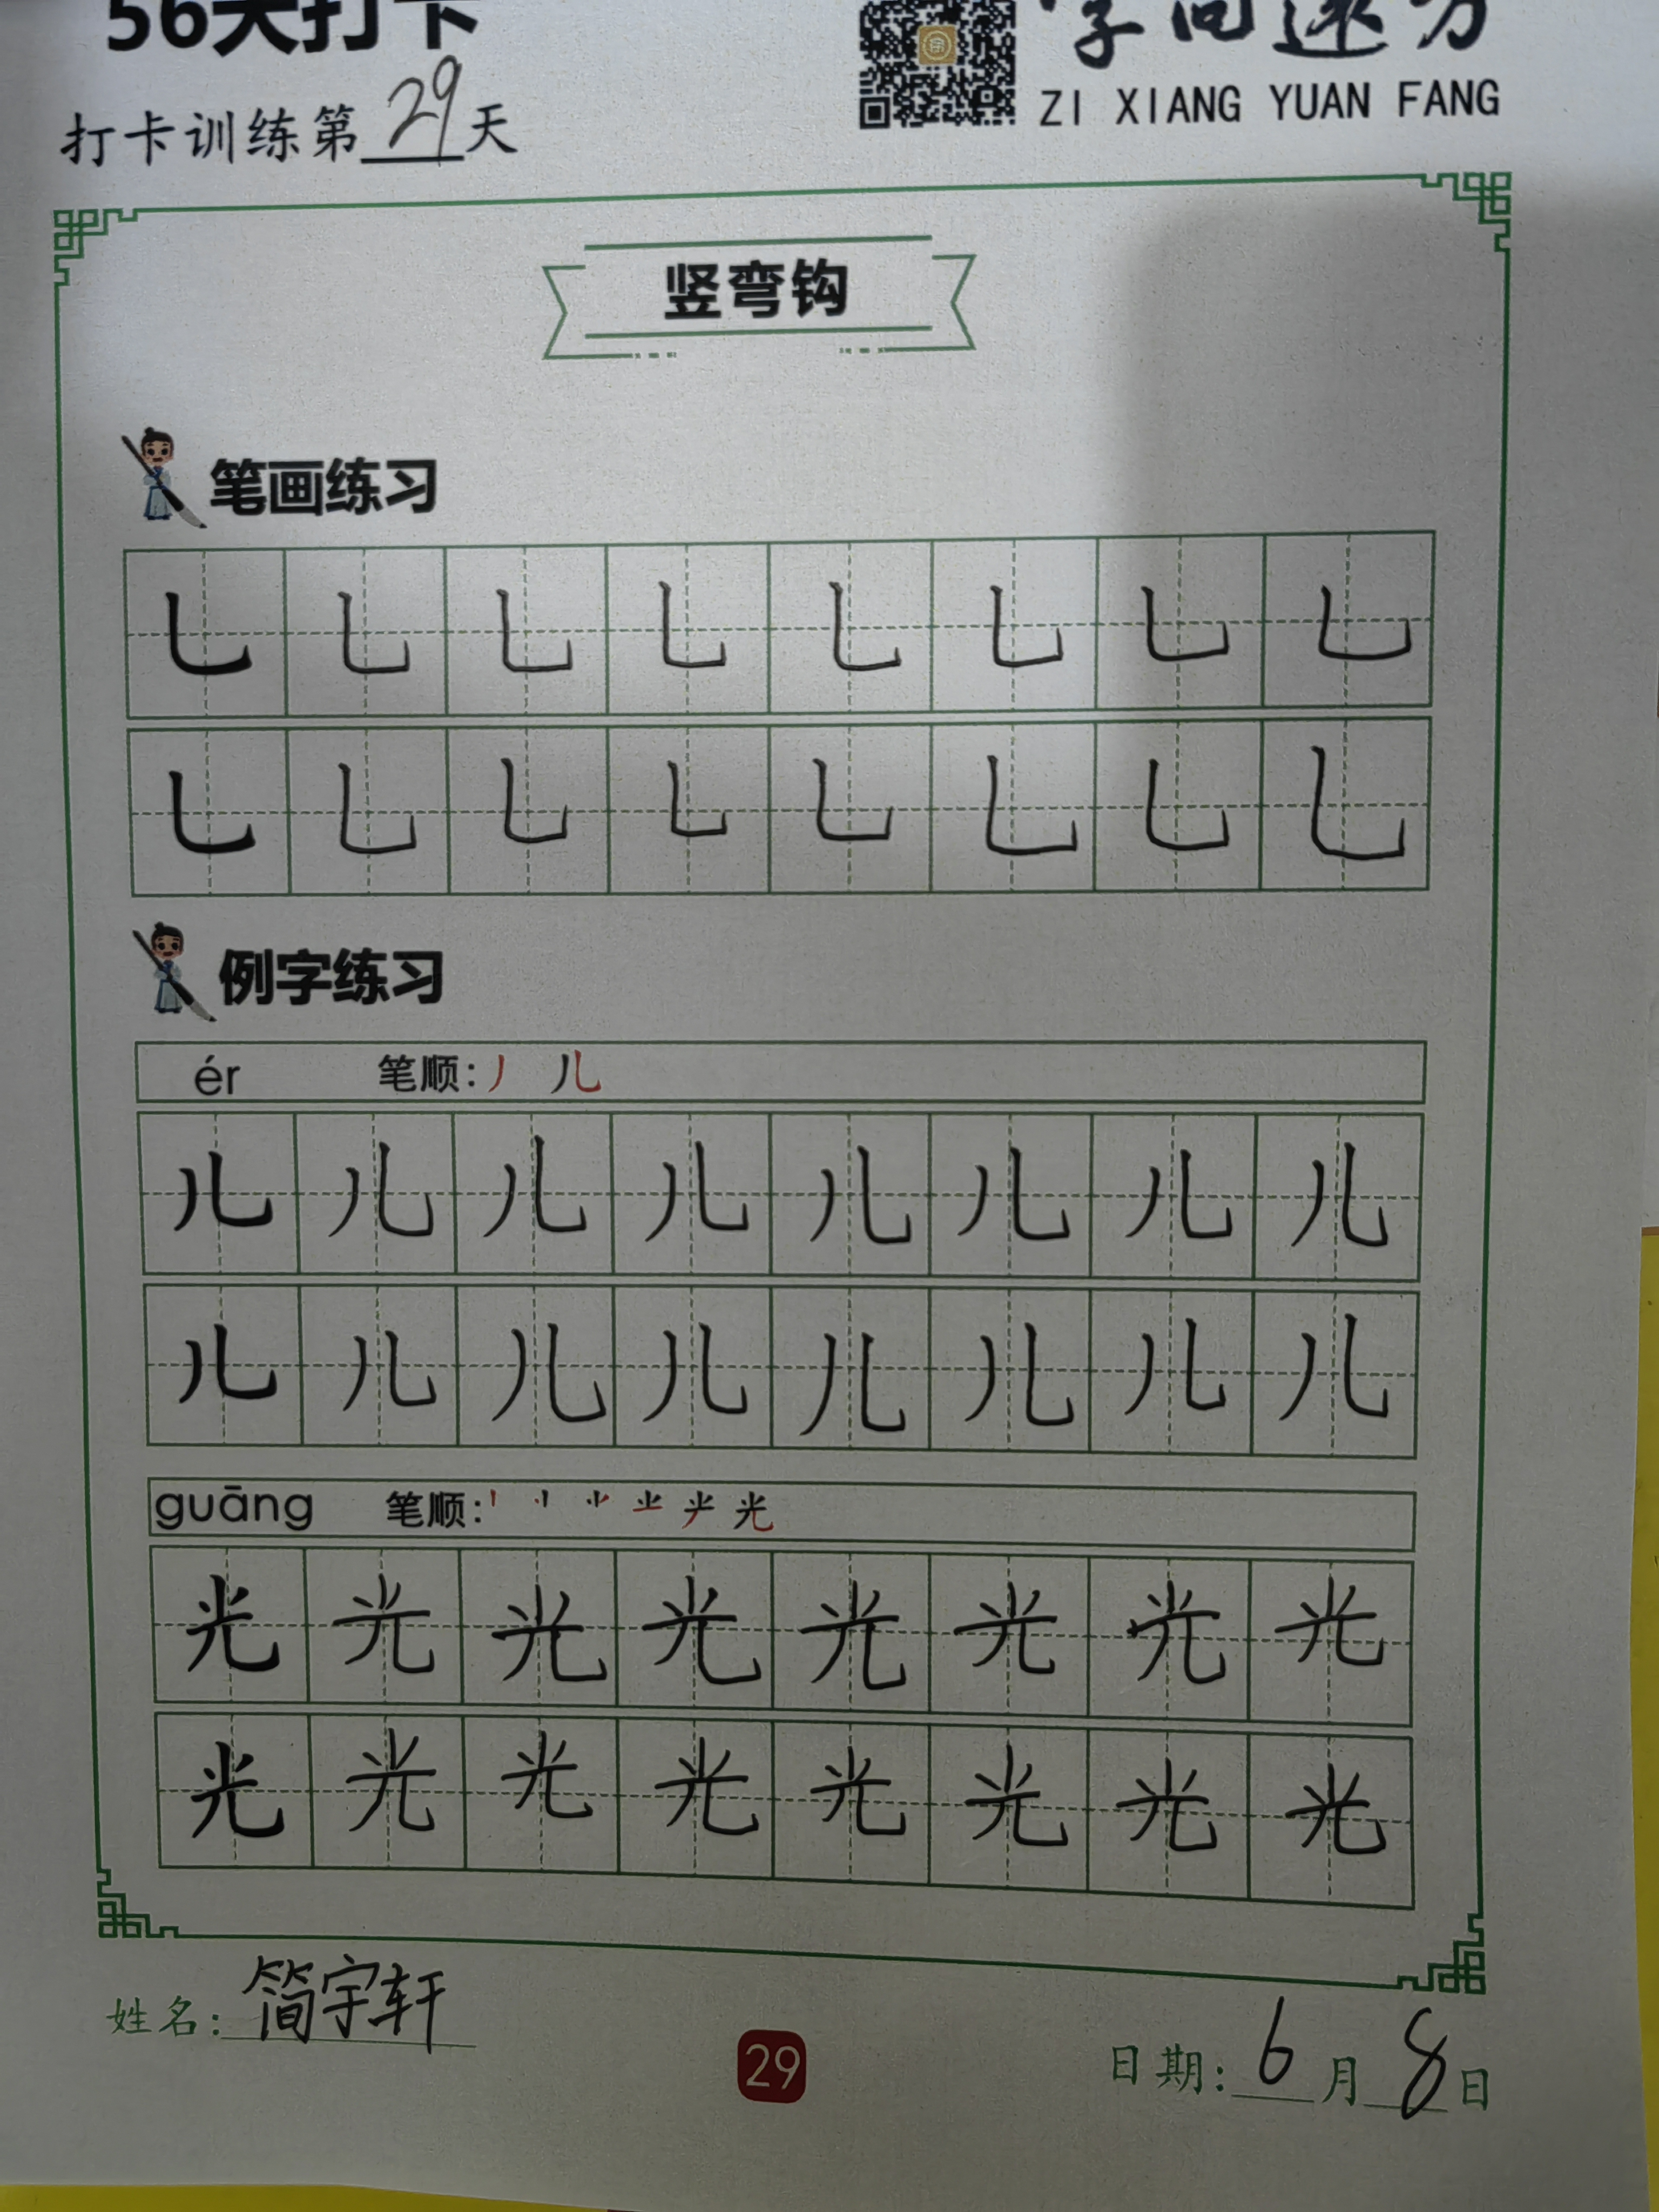 56天打卡
打卡训练第29天
字向远方
ZI XIANG YUAN FANG
竖弯钩
笔画练习
乚 乚 乚 乚 乚 乚 乚 乚
乚 乚 乚 乚 乚 乚 乚 乚
例字练习
ér 笔顺: 丿 儿
儿 儿 儿 儿 儿 儿 儿 儿
儿 儿 儿 儿 儿 儿 儿 儿
guāng 笔顺: 光
光 光 光 光 光 光 光 光
光 光 光 光 光 光 光 光
姓名: 简宇轩
29
日期: 6月8日